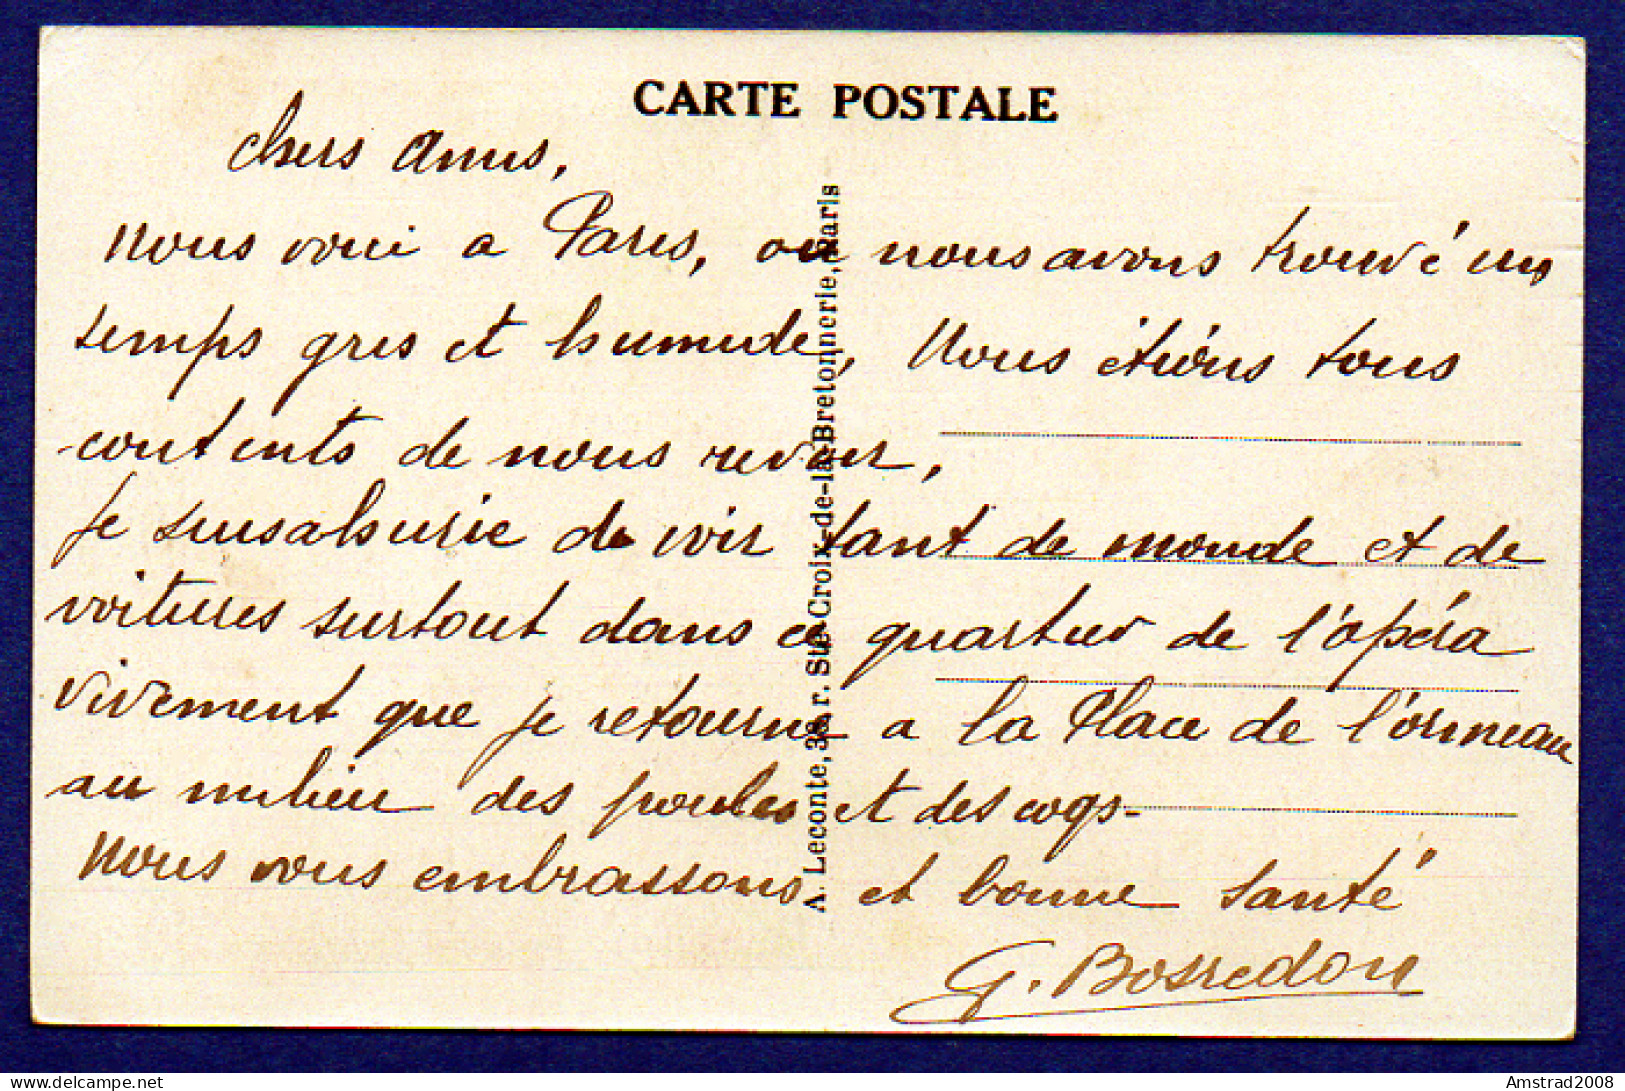 CARTE POSTALE
Chers Amis,
Nous voici a Paris, ou nous avons trouvé un
temps gris et humide, Nous étions tous
contents de nous revoir,
Je suis ahurie de voir tant de monde et de
voitures surtout dans ce quartier de l'opéra
vivement que je retourne a la Place de l'ormeau
au milieu des poules et des coqs-
Nous vous embrassons et bonne Santé
G. Bosredon
A. Leconte, 38 r. Ste-Croix-de-la-Bretonnerie, Paris
delcampe.net
Amstrad2008